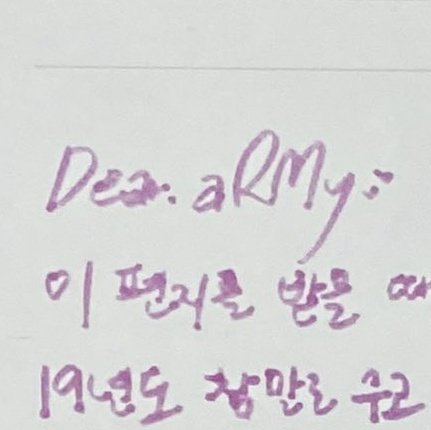 Dear. aRMy:
이 편지를 받을 때
19년도 참말로 수고